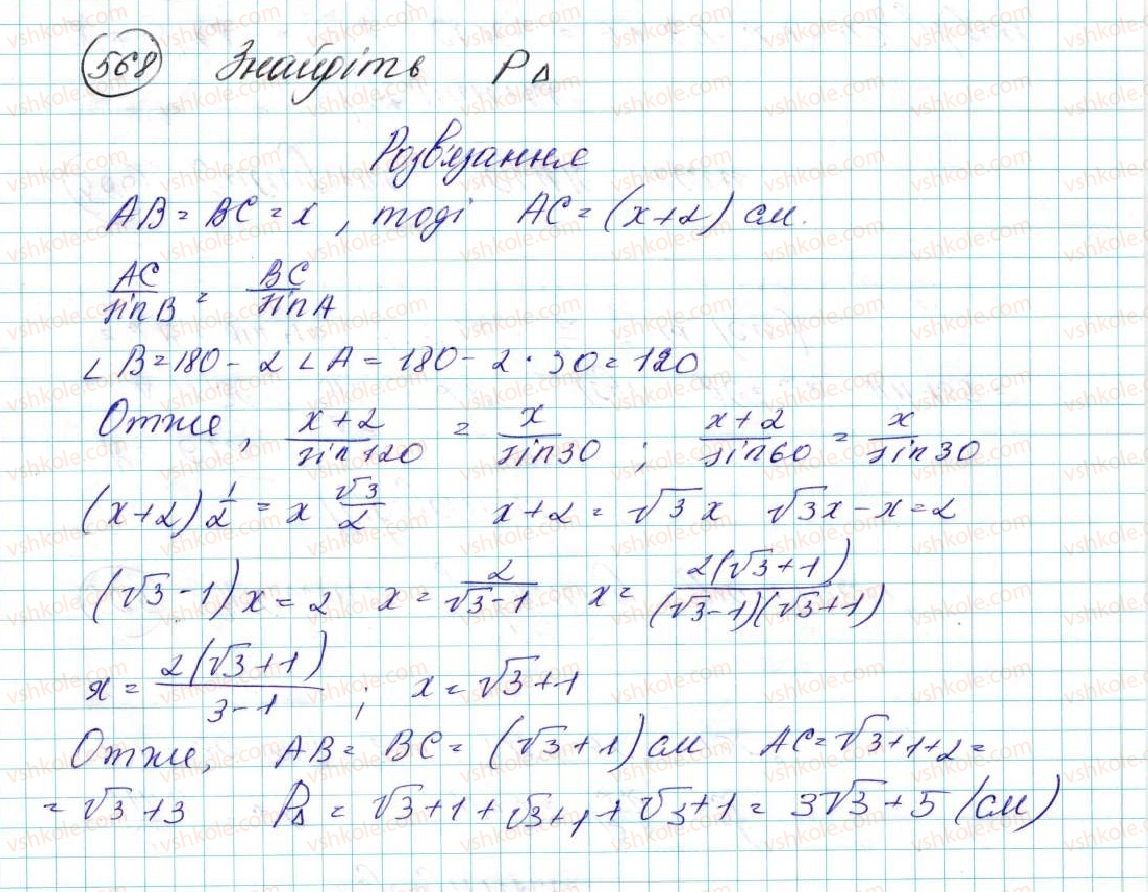 568 Знайдіть P△
Розв'язання
AB = BC = x, тоді AC = (x+2) см.
AC/sin B = BC/sin A
∠B = 180 - 2∠A = 180 - 2·30 = 120
Отже, (x+2)/sin 120 = x/sin 30 ; (x+2)/sin 60 = x/sin 30
(x+2) 1/2 = x √3/2 x+2 = √3x √3x - x = 2
(√3-1)x = 2 x = 2/(√3-1) x = 2(√3+1)/((√3-1)(√3+1))
x = 2(√3+1)/(3-1) ; x = √3+1
Отже, AB = BC = (√3+1) см AC = √3+1+2 =
= √3+3 P△ = √3+1+√3+1+√3+1 = 3√3+5 (см)